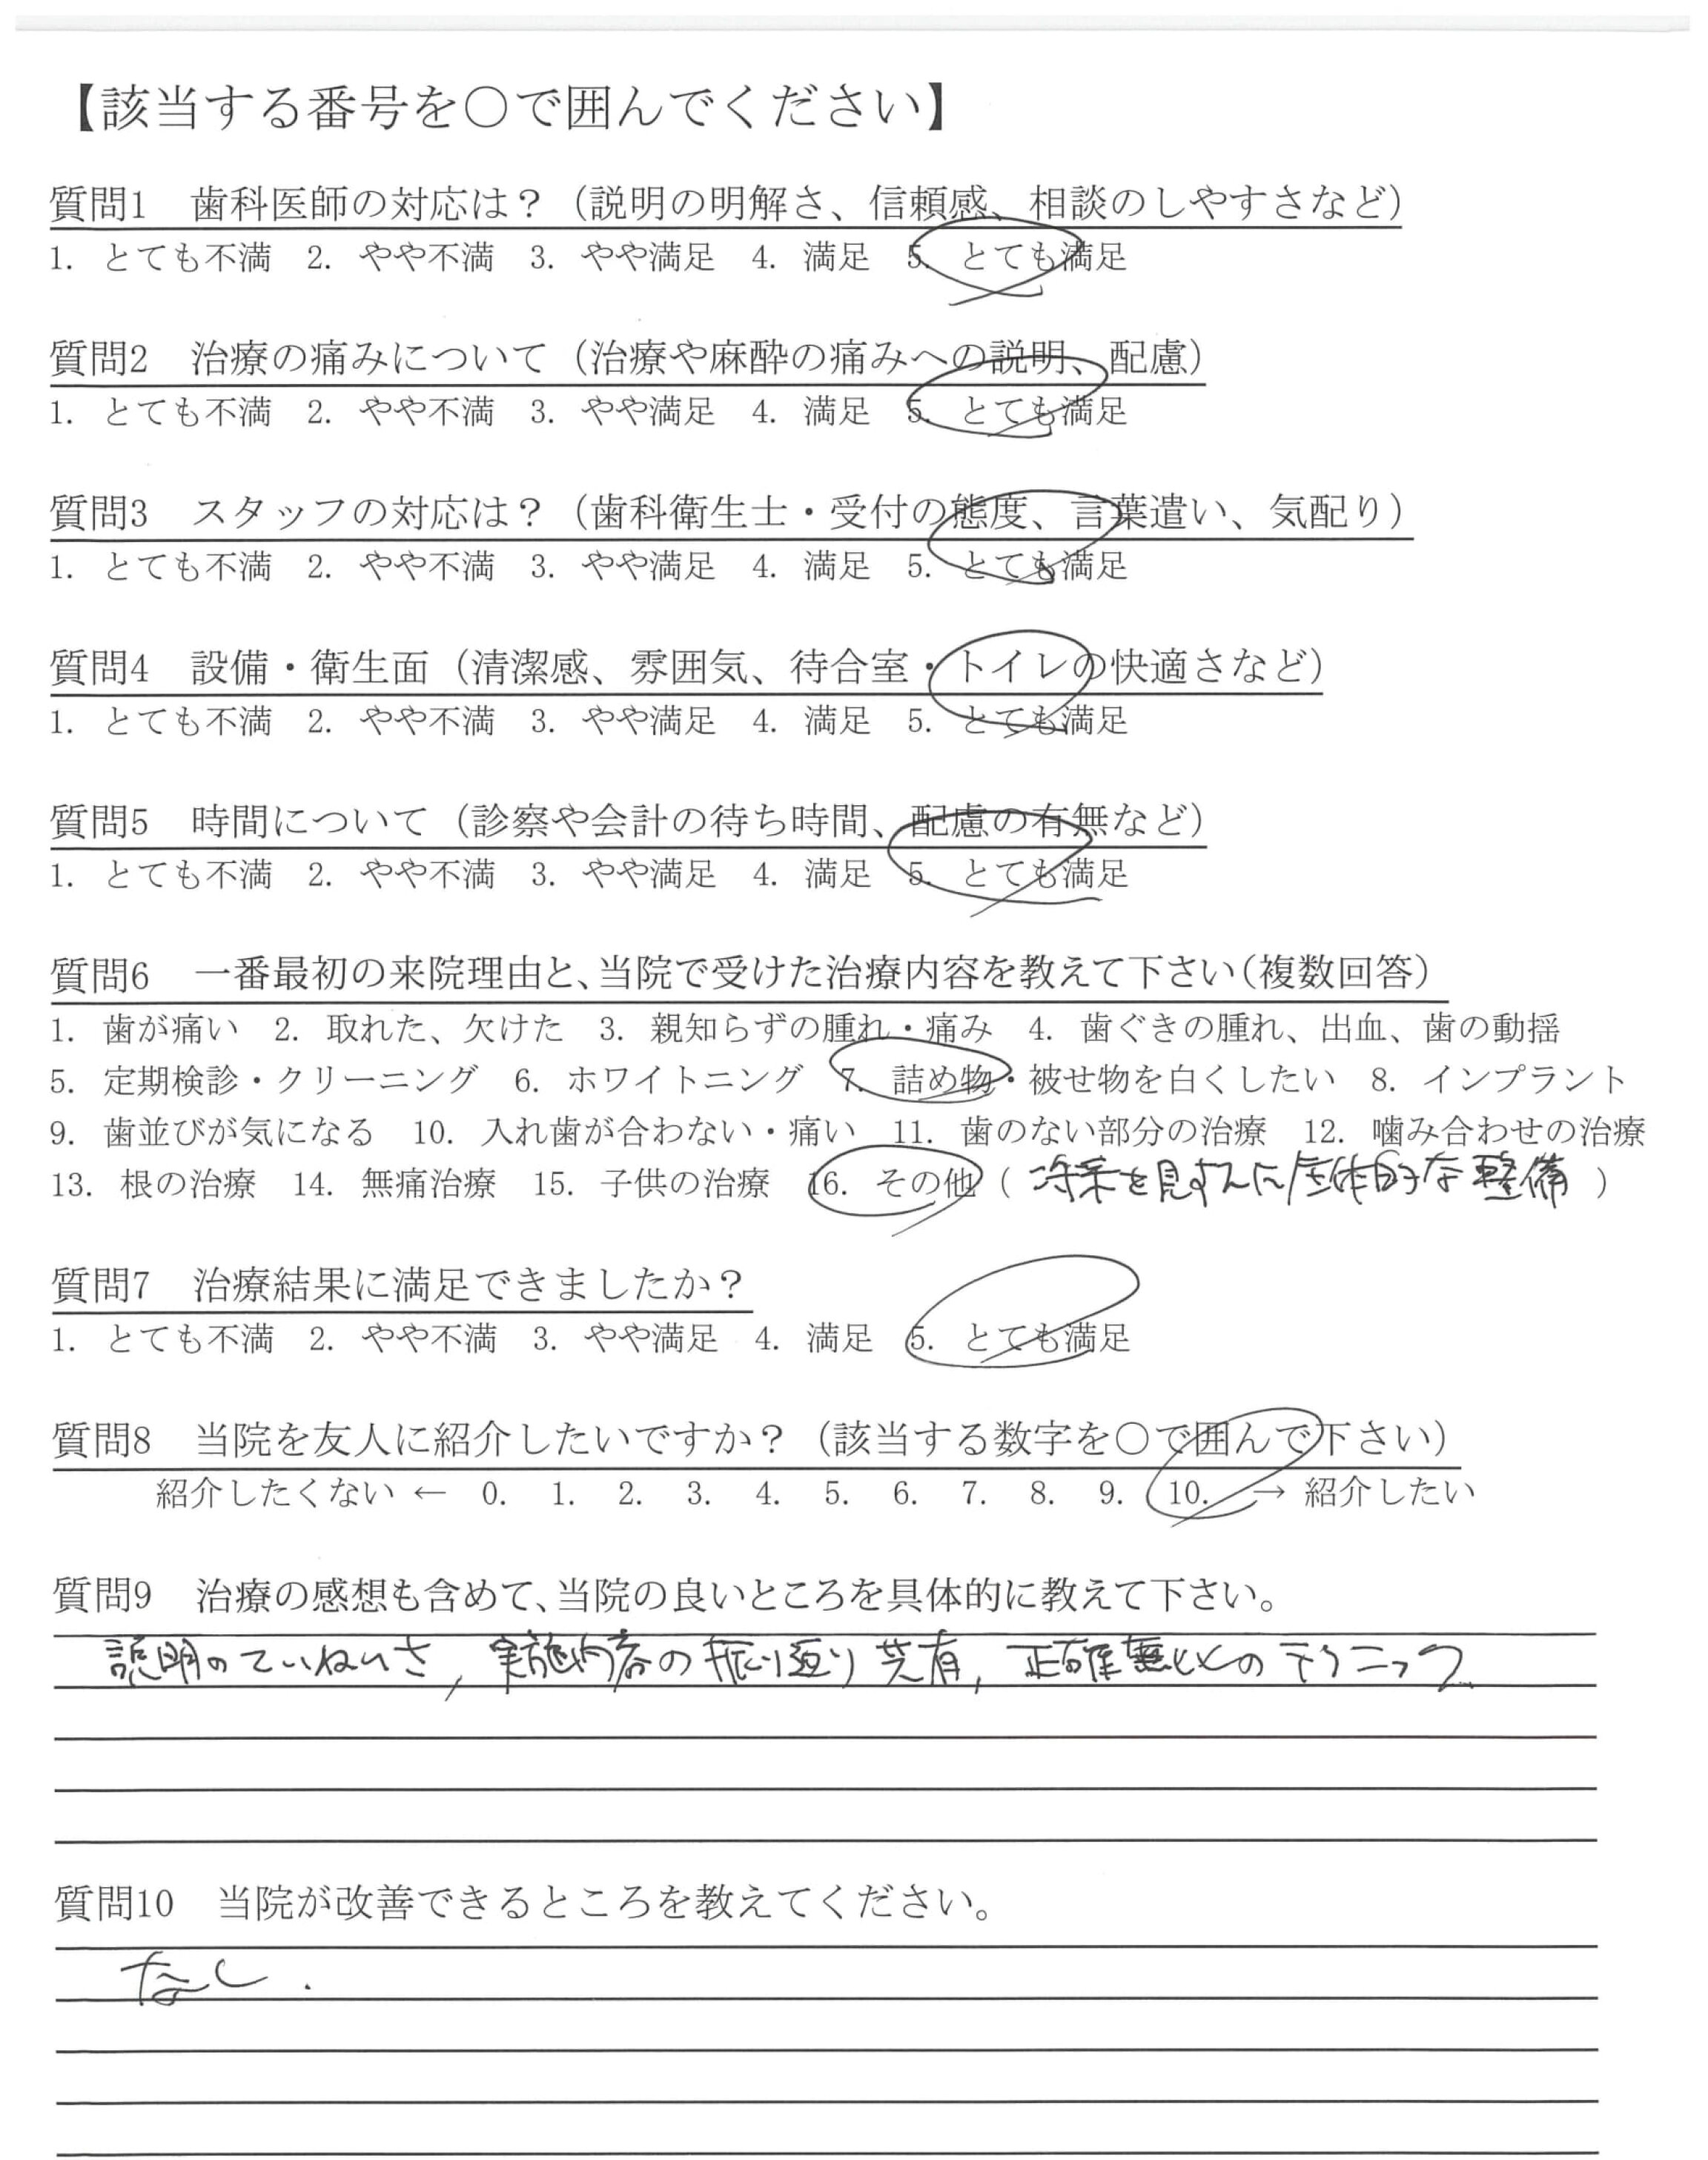 【該当する番号を○で囲んでください】
質問1　歯科医師の対応は？（説明の明解さ、信頼感、相談のしやすさなど）
1. とても不満　2. やや不満　3. やや満足　4. 満足　5. とても満足
質問2　治療の痛みについて（治療や麻酔の痛みへの説明、配慮）
1. とても不満　2. やや不満　3. やや満足　4. 満足　5. とても満足
質問3　スタッフの対応は？（歯科衛生士・受付の態度、言葉遣い、気配り）
1. とても不満　2. やや不満　3. やや満足　4. 満足　5. とても満足
質問4　設備・衛生面（清潔感、雰囲気、待合室・トイレの快適さなど）
1. とても不満　2. やや不満　3. やや満足　4. 満足　5. とても満足
質問5　時間について（診察や会計の待ち時間、配慮の有無など）
1. とても不満　2. やや不満　3. やや満足　4. 満足　5. とても満足
質問6　一番最初の来院理由と、当院で受けた治療内容を教えて下さい（複数回答）
1. 歯が痛い　2. 取れた、欠けた　3. 親知らずの腫れ・痛み　4. 歯ぐきの腫れ、出血、歯の動揺
5. 定期検診・クリーニング　6. ホワイトニング　7. 詰め物・被せ物を白くしたい　8. インプラント
9. 歯並びが気になる　10. 入れ歯が合わない・痛い　11. 歯のない部分の治療　12. 噛み合わせの治療
13. 根の治療　14. 無痛治療　15. 子供の治療　16. その他（将来を見すえた全体的な整備）
質問7　治療結果に満足できましたか？
1. とても不満　2. やや不満　3. やや満足　4. 満足　5. とても満足
質問8　当院を友人に紹介したいですか？（該当する数字を○で囲んで下さい）
紹介したくない ← 0. 1. 2. 3. 4. 5. 6. 7. 8. 9. 10. → 紹介したい
質問9　治療の感想も含めて、当院の良いところを具体的に教えて下さい。
説明のていねいさ, 実施内容の振り返り共有, 正確無比のテクニック
質問10　当院が改善できるところを教えてください。
なし.